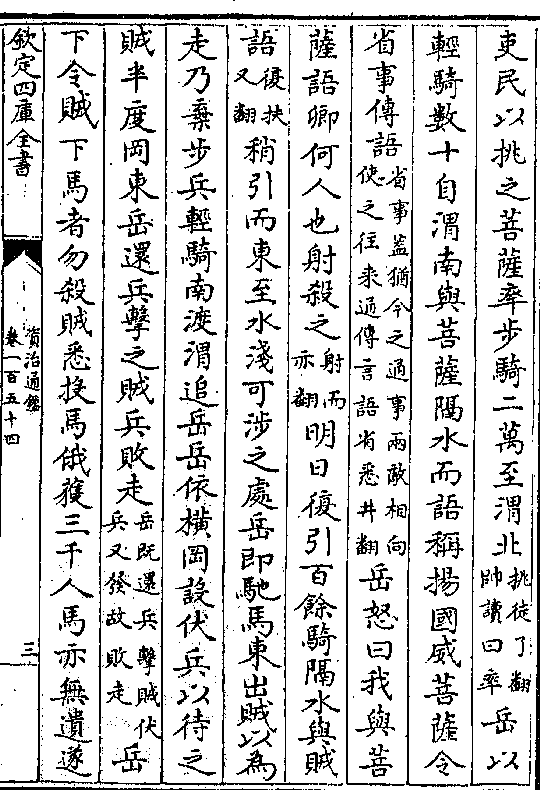 吏民以挑之菩薩率步騎二萬至渭北挑徒了翻帥讀曰率岳以
輕騎數十自渭南與菩薩隔水而語稱揚國威菩薩令
省事傳語省事蓋猶今之通事兩敵相向使之往來通傳言語省悉井翻岳怒曰我與菩
薩語卿何人也射殺之射而亦翻明日復引百餘騎隔水與賊
語復扶又翻稍引而東至水淺可涉之處岳即馳馬東出賊以為
走乃棄步兵輕騎南渡渭追岳岳依橫岡設伏兵以待之
賊半度岡東岳還兵擊之賊兵敗走岳既還兵擊賊伏兵又發故敗走岳
下令賊下馬者勿殺賊悉投馬俄獲三千人馬亦無遺遂
欽定四庫全書
資治通鑑
卷一百五十四
三